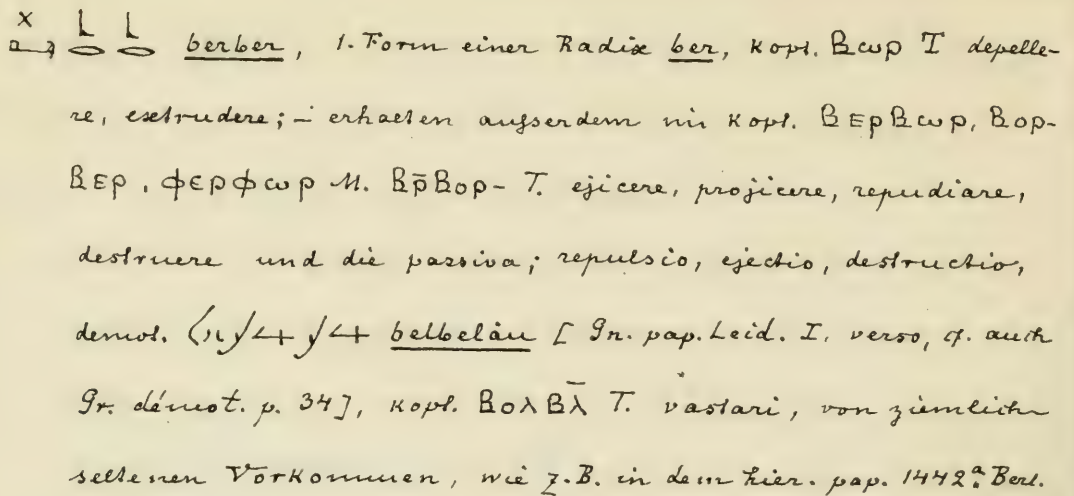 berber, 1. Form einer Radix ber, kopt. ⲂⲱⲣT depelle-
re, extrudere; – erhalten ausserdem im Kopt. ⲂⲉⲣⲂⲱⲣ, Ⲃⲟⲣ-
Ⲃⲉⲣ, ⲫⲉⲣⲫⲱⲣ M. Ⲃⲣ̄Ⲃⲟⲣ- T. ejicere, projicere, repudiare,
destruere und die passiva; repulsio, ejectio, destructio,
demot. belbelàu [Gn. pap. Leid. I. verso, cf. auch
Gr. démot. p. 34], kopt. ⲂⲟⲗⲂⲗ̄ T. vastari, von ziemlich
seltenen Vorkommen, wie z.B. in dem hier. pap. 1442ª. Berl.